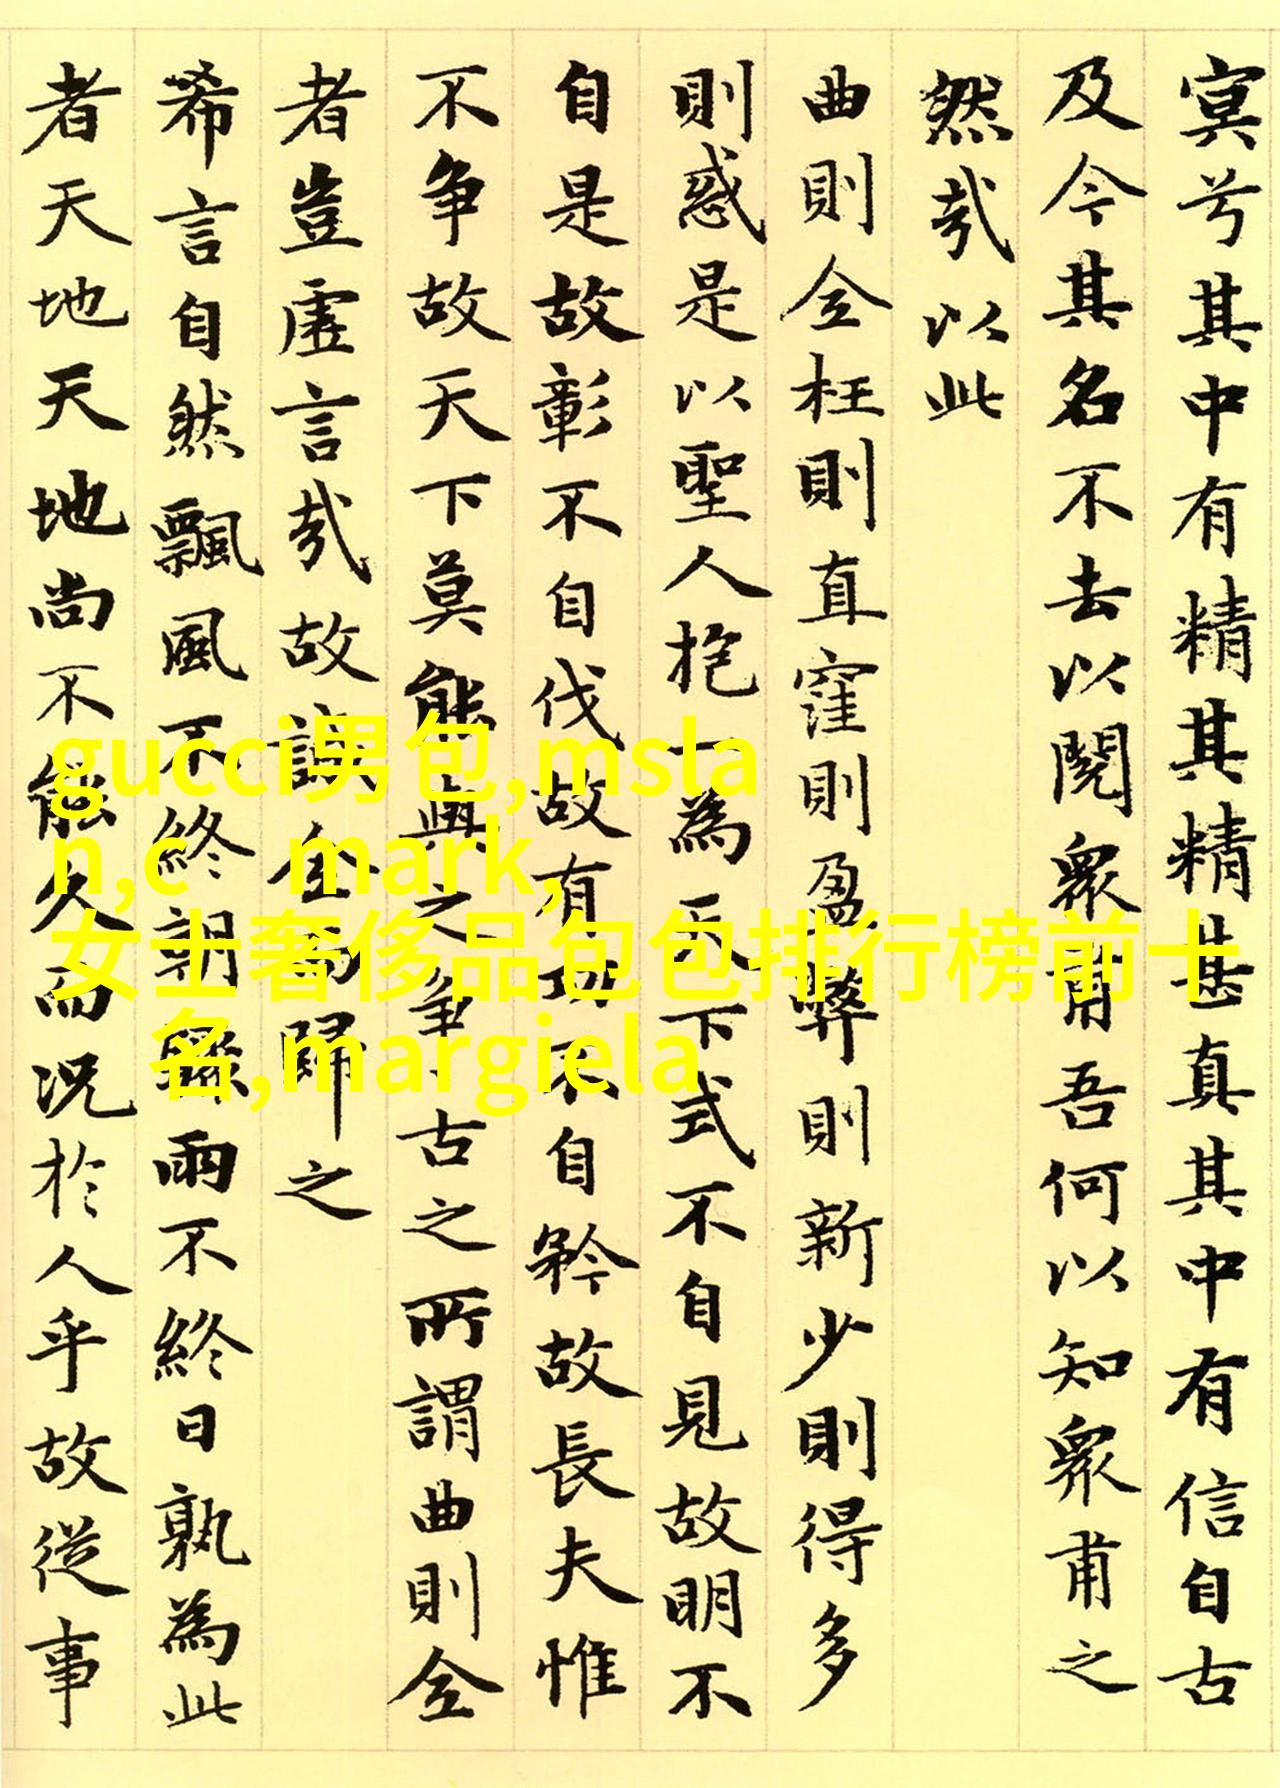 窅兮其中有精其精甚真其中有信自古
及今其名不去以閱衆甫吾何以知衆甫之
然哉以此
曲則全枉則直窪則盈弊則新少則得多
則惑是以聖人抱一為天下式不自見故明不
自是故彰不自伐故有功不自矜故長夫惟
不争故天下莫能與之争古之所謂曲則全
者豈虛言哉故誠全而歸之
希言自然飄風不終朝驟雨不終日孰為此
者天地天地尚不能久而况於人乎故從事
gucci男包,msla
n,c mark,
女士奢侈品包包排行榜前十
名,margiela